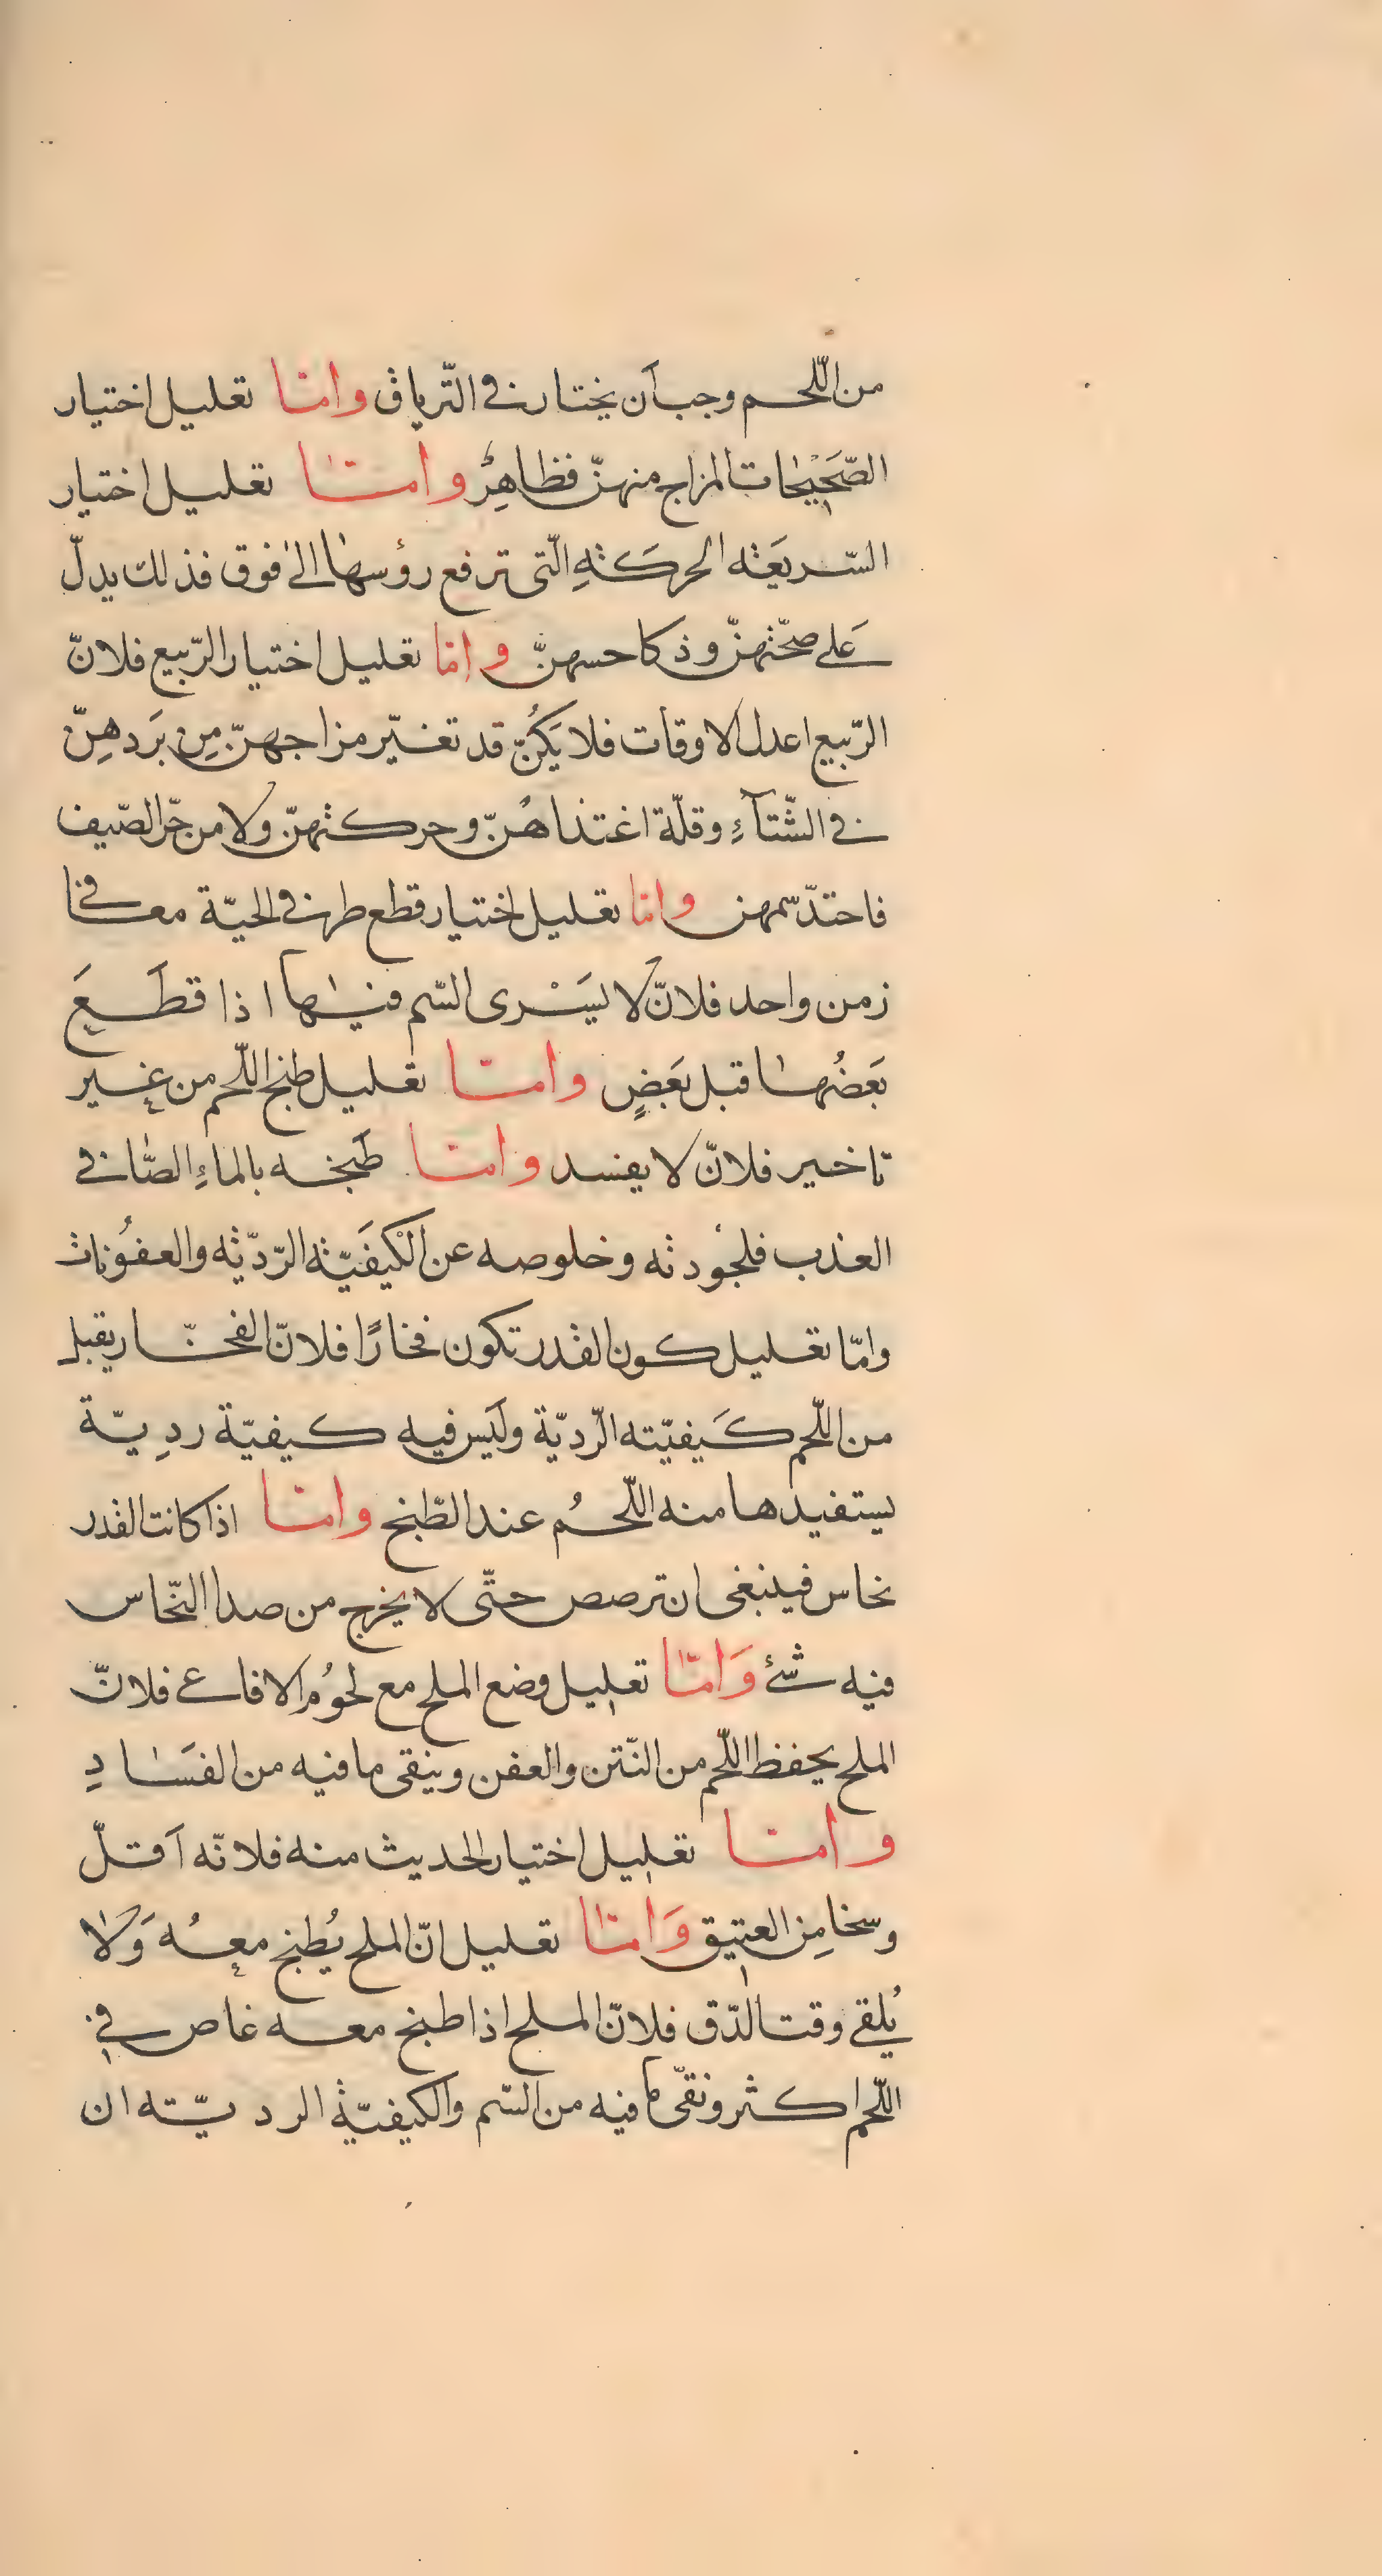 من اللّحم وجب أن يختار في التّرياق وامّا تعليل اختيار
الصّحَيْحات المزاج منهنّ فظاهِرٌ وامّا تعليل اختيار
السّريعَة الحركَةِ الّتى ترفع رؤسها الىٰ فوق فذلك يدلّ
عَلى صحّتهنّ وذكا حسهنّ وامّا تعليل اختيار الرّبيع فلانّ
الرّبيع اعدل الاوقات فلا يَكُنّ قد تغيّر مزاجهنّ مِن بَردهِنّ
في الشّتآءِ وقلّة اغتذاهُنّ وحركتهنّ ولا من حّر الصّيف
فاحتدّ سمهن وامّا تعليل اختيار قطع طرفي الحيّة معا في
زمن واحد فلانّ لا يَسْرى السّم فيها اذا قطَعَ
بَعضُها قبل بَعضٍ وامّا تعليل طبخ اللّحم من غير
تاخير فلانّ لا يفسد وامّا طَبخه بالماءِ الصّافي
العذب فلجُودته وخلوصه عن الْكيفَيّة الرّديّة والعفُونات
وامّا تعليل كون القدر تكون فخارًا فلانّ الفخّار يقبل
من اللّحم كَيفيّته الرّديّة ولَيس فيه كيفيّة رديّة
يستفيدها منه اللّحُم عند الطّبخ وامّا اذا كانت القدر
نحاس فينبغى ان ترصص حتّى لا يخرج من صدا النّحاس
فيه شئ وَامّا تعليل وضع الملح مع لحوُم الافاعى فلانّ
الملح يحفظ اللّحم من النّتن والعفن وينقى ما فيه من الفسَادِ
وامّا تعليل اختيار الحديث منه فلانّه اَقلّ
وسخا مِن العتيق وَامّا تعليل انّ الملح يُطبخ معُه وَلا
يُلقى وقت الدّق فلانّ الملح اذا طبخ معه غاص في
اللّحم اكثر ونقّى ما فيه من السّم والكيفيّة الرديّته ان